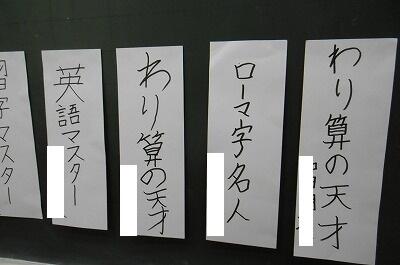 わり算の天才
ローマ字名人
わり算の天才
英語マスター
習字マスター